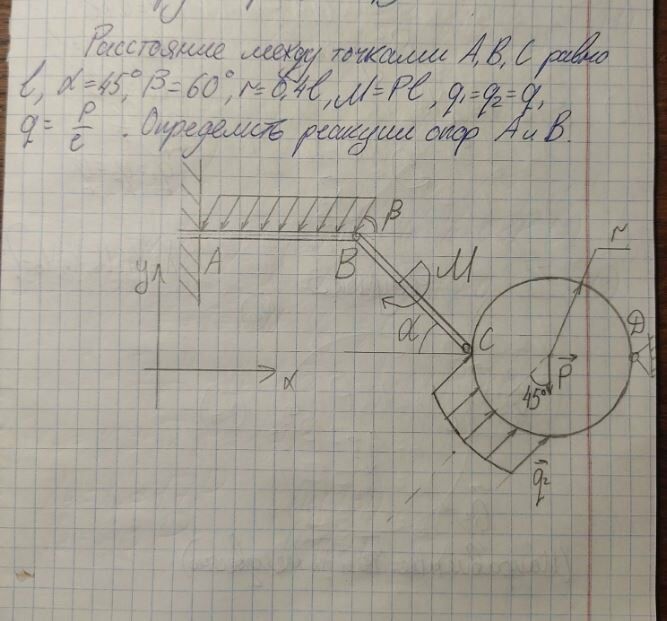 Расстояние между точками A, B, C равно
l, α=45°, β=60°, r=0,4l, M=Pl, q₁=q₂=q,
q = P/l. Определить реакции опор A и B.
β
r
A
B
M
y
D
α
C
P
45°
x
q₂